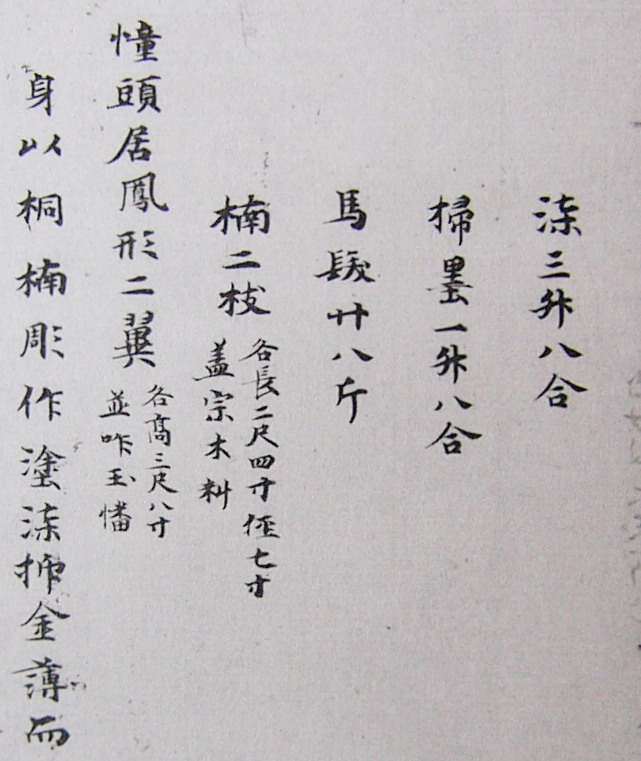 漆三升八合
掃墨一升八合
馬髮廿八斤
楠二枝
各長二尺四寸徑七寸
蓋宗木料
幢頭居鳳形二翼
各高三尺八寸
並咋玉幡
身以桐楠彫作塗漆押金薄而